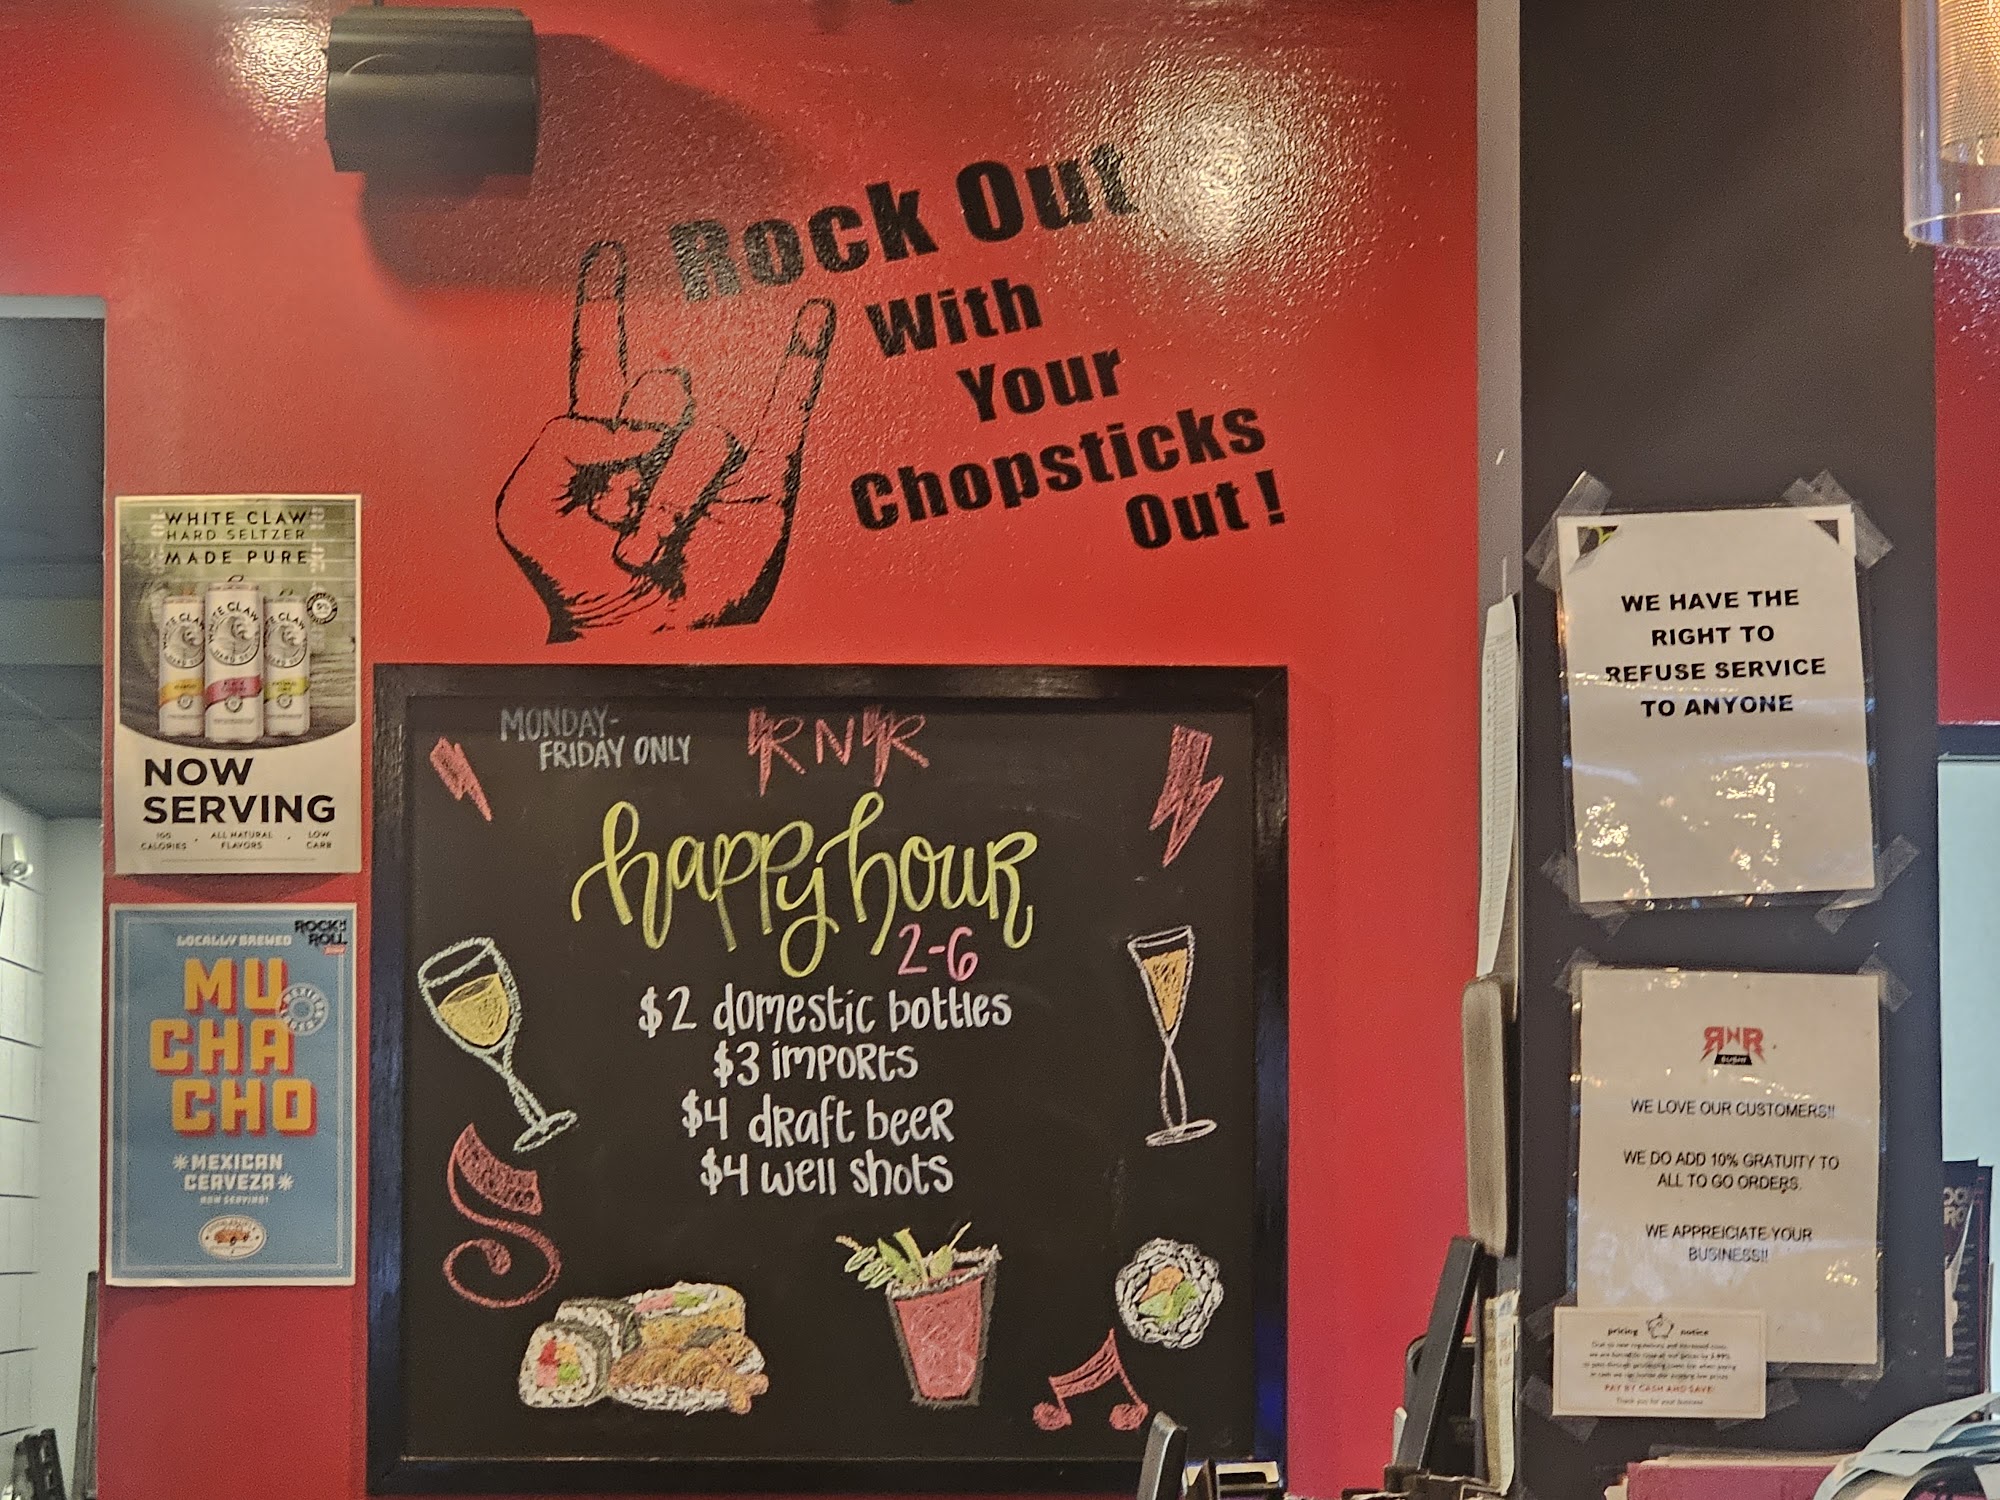 Rock Out
With
Your
Chopsticks
Out !
WHITE CLAW
HARD SELTZER
MADE PURE
WHITE CLAW
HARD SELTZER
NOW
SERVING
100
CALORIES
ALL NATURAL
FLAVORS
LOW
CARB
LOCALLY BREWED
ROCK N
ROLL
MU
CHA
CHO
*MEXICAN
CERVEZA*
NOW SERVING!
MONDAY-
FRIDAY ONLY
RNR
happy hour
2-6
$2 domestic bottles
$3 imports
$4 draft beer
$4 well shots
WE HAVE THE
RIGHT TO
REFUSE SERVICE
TO ANYONE
RNR
SUSHI
WE LOVE OUR CUSTOMERS!!
WE DO ADD 10% GRATUITY TO
ALL TO GO ORDERS.
WE APPREICIATE YOUR
BUSINESS!!
pricing notice
PAY BY CASH AND SAVE!
Thank you for your business